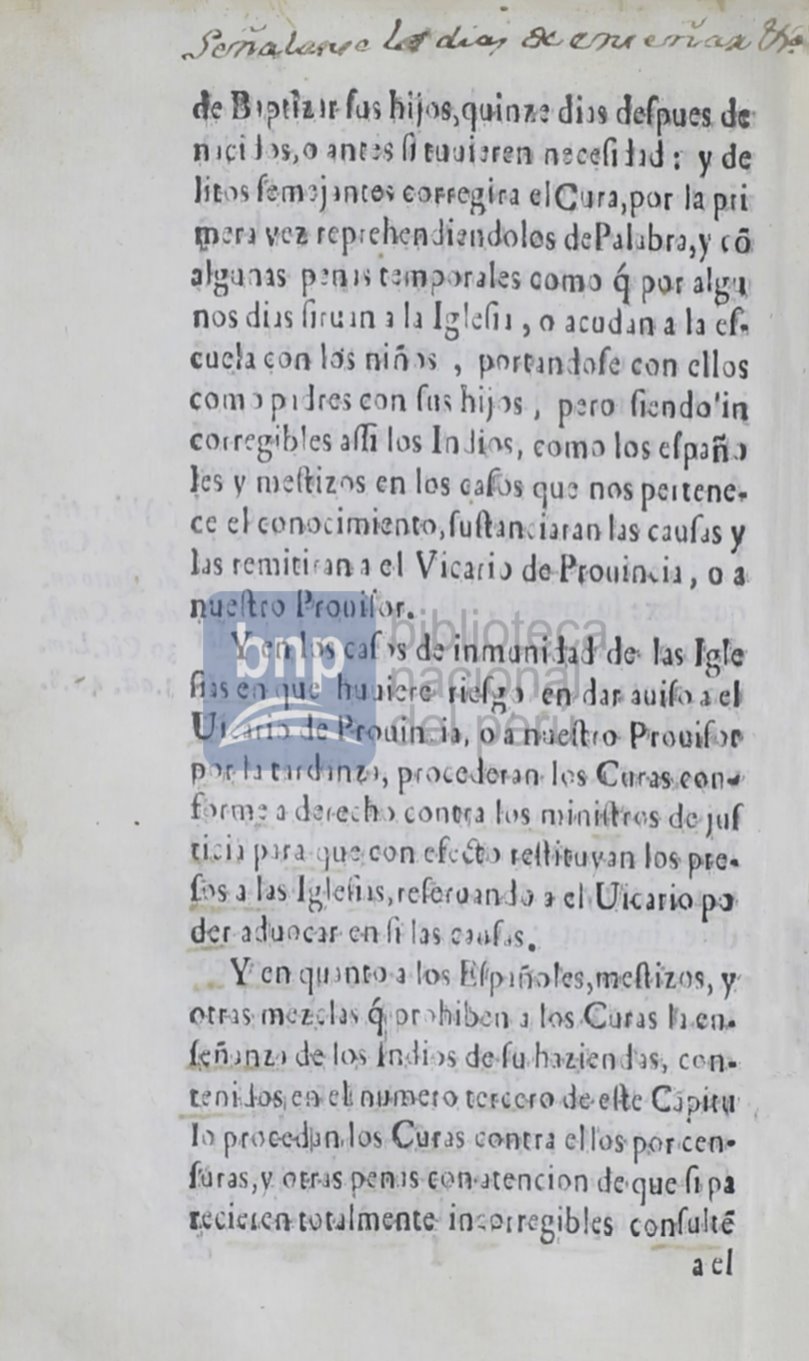 Señalanse los dias de enseñar
de Baptizar sus hijos, quinze dias despues de
nacidos, o antes si tuuieren necesidad: y de
litos semejantes corregira el Cura, por la pri
mera vez reprehendiendolos de Palabra, y cõ
algunas penas temporales como q́ por algu
nos dias siruan a la Iglesia, o acudan a la es-
cuela con los niños, portandose con ellos
como padres con sus hijos, pero siendo in
corregibles assi los Indios, como los españo
les y mestizos en los casos que nos pertene-
ce el conocimiento, sustanciaran las causas y
las remitiran a el Vicario de Prouincia, o a
nuestro Prouisor.
Y en los casos de inmunidad de las Igle
sias en que huuiere riesgo en dar auiso a el
Uicario de Prouincia, o a nuestro Prouisor
por la tardanza, procederan los Curas con-
forme a derecho contra los ministros de jus
ticia para que con efecto restituyan los pre-
sos a las Iglesias, reseruando a el Uicario po
der aduocar en si las causas.
Y en quanto a los Españoles, mestizos, y
otras mezclas q́ prohiben a los Curas la en-
señanza de los Indios de su haziendas, con-
tenidos en el numero tercero de este Capitu
lo procedan los Curas contra ellos por cen-
suras, y otras penas con atencion de que si pa
recieren totalmente incorregibles consultẽ
a el
bnp biblioteca
nacional
del perú